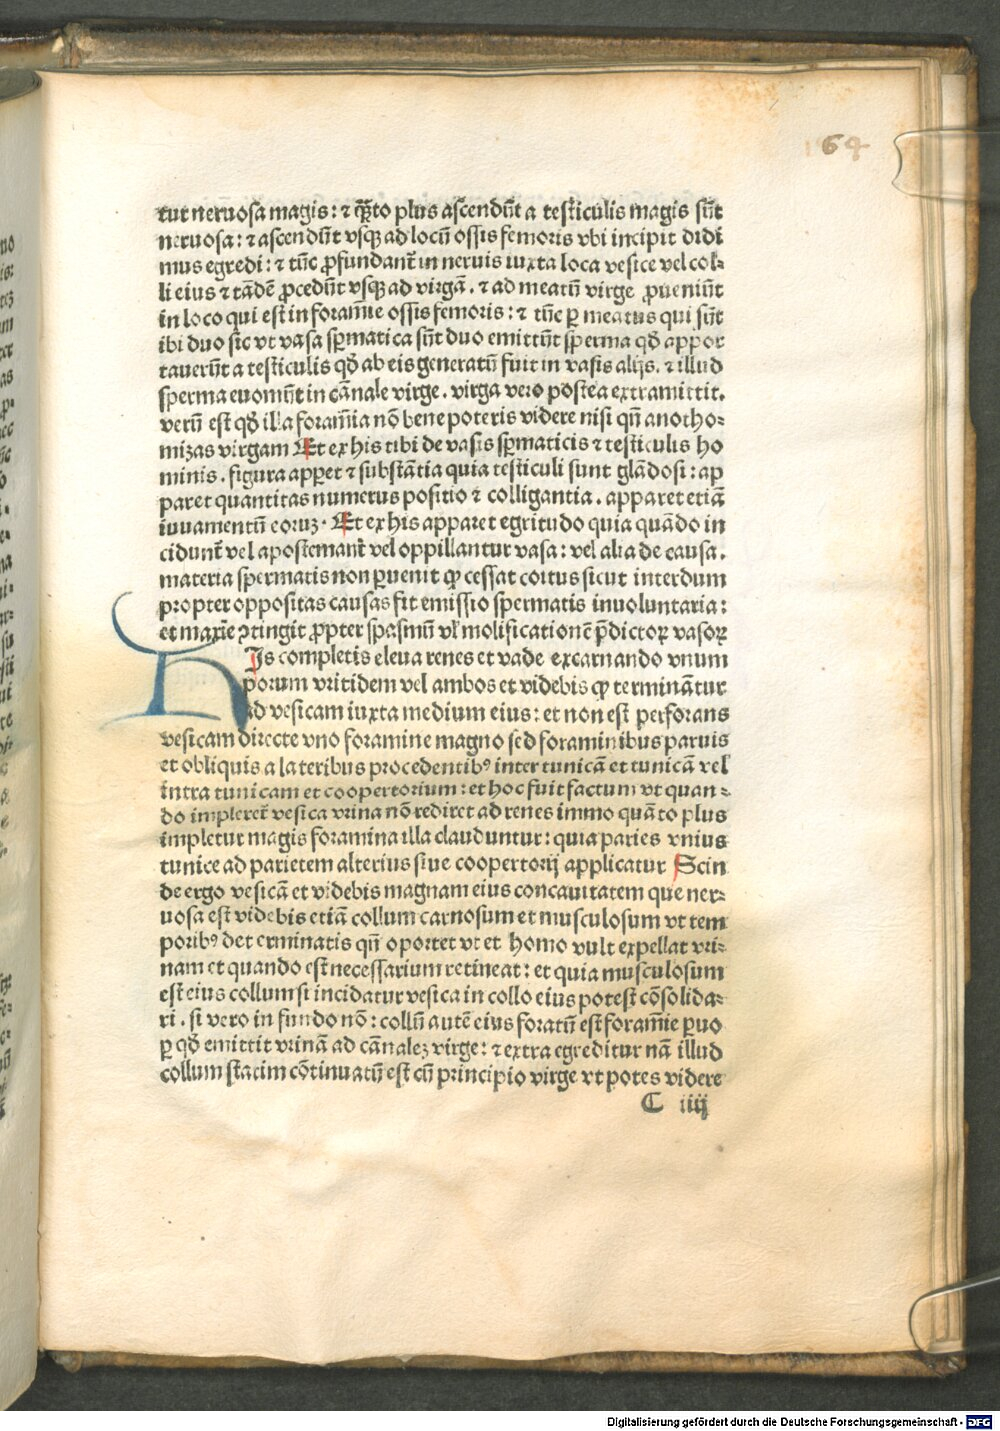 64
tur neruosa magis: ⁊ q̃̃to plus ascendũt a testiculis magis sũt
neruosa: ⁊ ascendũt vsq̃ ad locũ ossis femoris vbi incipit didi
mus egredi: ⁊ tũc ꝓfundant̃ in neruis iuxta loca vesice vel col⸗
li eius ⁊ tãdẽ ꝓcedũt vsq̃ ad virgã. ⁊ ad meatũ virge ꝓueniũt
in loco qui est in foram̃ie ossis femoris: ⁊ tũc ꝑ meatus qui sũt
ibi duo sic vt vasa sꝑmatica sũt duo emittũt sperma qđ appor
tauerũt a testiculis qđ ab eis generatũ fuit in vasis alijs. ⁊ illud
sperma euomũt in cãnale virge. virga vero postea extramittit.
verũ est qđ illa foram̃ia nõ bene poteris videre nisi qñ anotho⸗
mizas virgam Et ex his tibi de vasis sꝑmaticis ⁊ testiculis ho
minis. figura apꝑet ⁊ substãtia quia testiculi sunt glãdosi: ap
paret quantitas numerus positio ⁊ colligantia. apparet etiã
iuuamentũ eoruz. Et ex his apparet egritudo quia quãdo in
cidunt̃ vel apostemant̃ vel oppillantur vasa: vel alia de causa.
materia spermatis non ꝑuenit ꝙ cessat coitus sicut interdum
propter oppositas causas fit emissio spermatis inuoluntaria:
et maxĩe ꝯtingit ꝓpter spasmũ vl̃ molificationẽ p̃dictoꝝ vasoꝝ
HIs completis eleua renes et vade excarnando vnum
porum vritidem vel ambos et videbis ꝙ terminãtur
ad vesicam iuxta medium eius: et non est perforans
vesicam directe vno foramine magno sed foraminibus paruis
et obliquis a lateribus procedentibꝰ inter tunicã et tunicã vel
intra tunicam et coopertorium: et hoc fuit factum vt quan⸗
do impleret̃ vesica vrina nõ rediret ad renes immo quãto plus
impletur magis foramina illa clauduntur: quia paries vnius
tunice ad parietem alterius siue coopertorij applicatur Scin
de ergo vesicã et videbis magnam eius concauitatem que ner⸗
uosa est videbis etiã collum carnosum et musculosum vt tem
poribꝰ determinatis qñ oportet vt et homo vult expellat vri⸗
nam et quando est necessarium retineat: et quia musculosum
est eius collum si incidatur vesica in collo eius potest cõsolida⸗
ri. si vero in fundo nõ: collũ autẽ eius foratũ est foram̃ie ꝑuo
ꝑ qđ emittit vrinã ad cãnalez virge: ⁊ extra egreditur nã illud
collum statim cõtinuatũ est cũ principio virge vt potes videre
C iiij
Digitalisierung gefördert durch die Deutsche Forschungsgemeinschaft - DFG